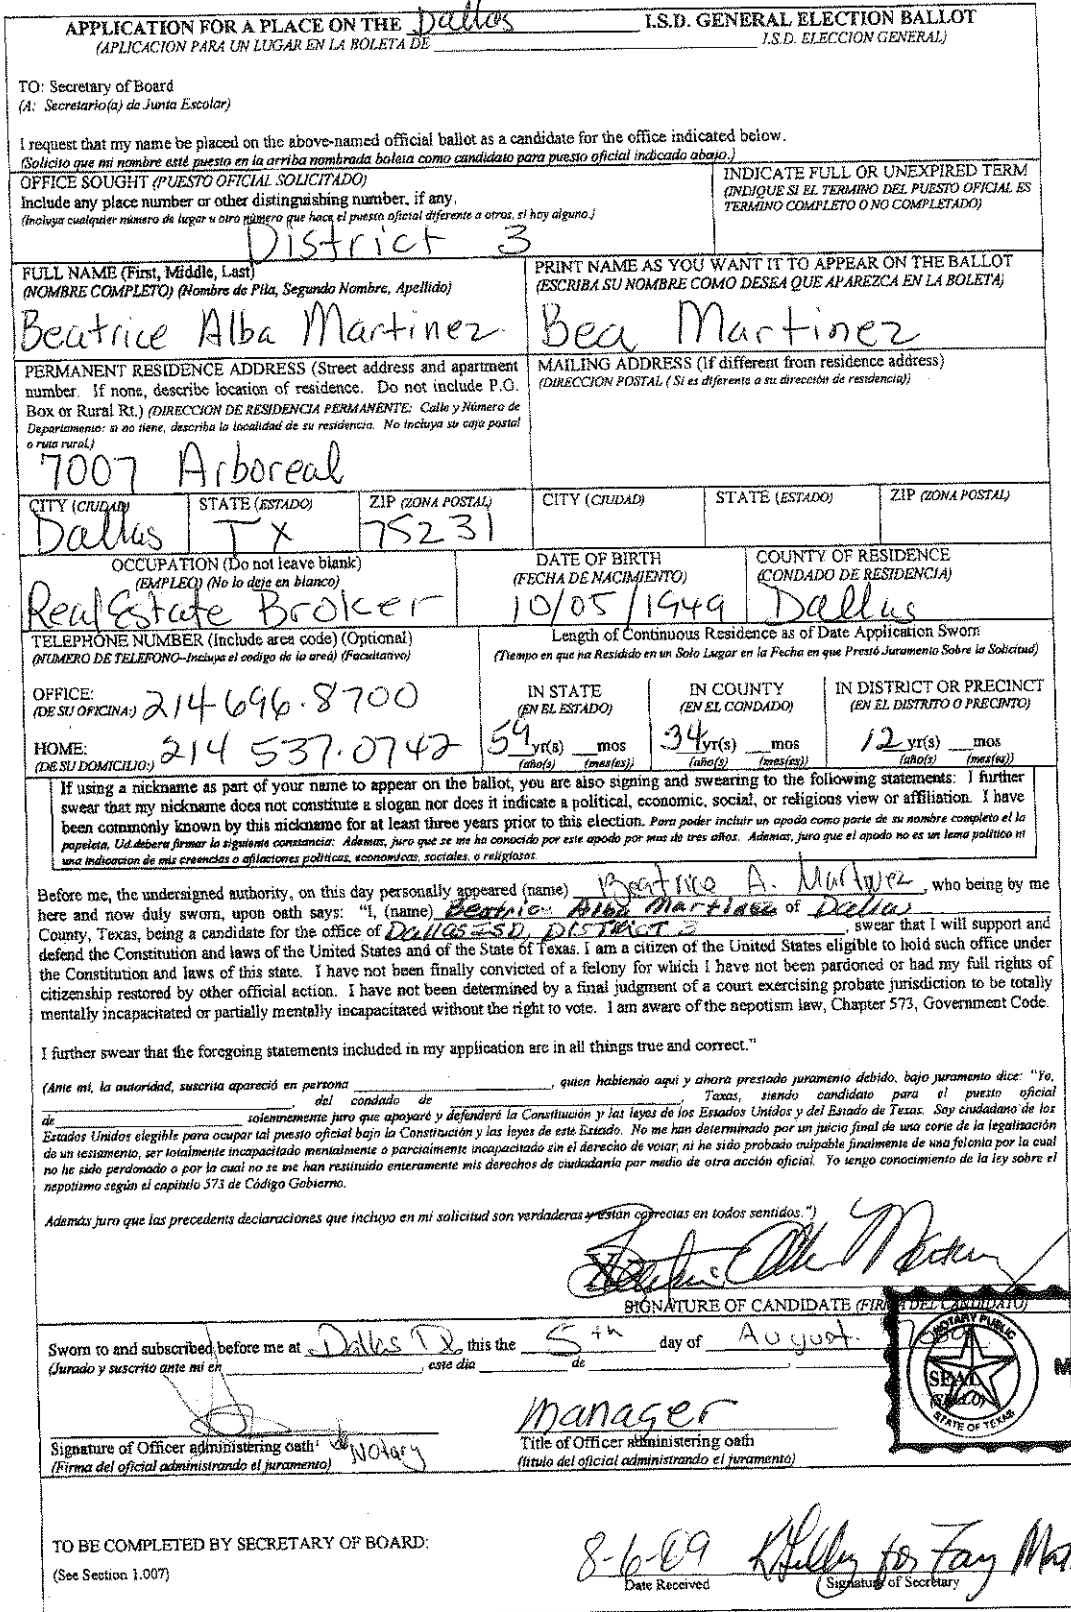 APPLICATION FOR A PLACE ON THE Dallas I.S.D. GENERAL ELECTION BALLOT
(APLICACION PARA UN LUGAR EN LA BOLETA DE I.S.D. ELECCION GENERAL)
TO: Secretary of Board
(A: Secretario(a) de Junta Escolar)
I request that my name be placed on the above-named official ballot as a candidate for the office indicated below.
(Solicito que mi nombre esté puesto en la arriba nombrada boleta como candidato para puesto oficial indicado abajo.)
OFFICE SOUGHT (PUESTO OFICIAL SOLICITADO)
Include any place number or other distinguishing number, if any.
(Incluya cualquier número de lugar u otro número que hace el puesto oficial diferente a otros, si hay alguno.)
District 3
INDICATE FULL OR UNEXPIRED TERM
(INDIQUE SI EL TERMINO DEL PUESTO OFICIAL ES
TERMINO COMPLETO O NO COMPLETADO)
FULL NAME (First, Middle, Last)
(NOMBRE COMPLETO) (Nombre de Pila, Segundo Nombre, Apellido)
Beatrice Alba Martinez
PRINT NAME AS YOU WANT IT TO APPEAR ON THE BALLOT
(ESCRIBA SU NOMBRE COMO DESEA QUE APAREZCA EN LA BOLETA)
Bea Martinez
PERMANENT RESIDENCE ADDRESS (Street address and apartment
number. If none, describe location of residence. Do not include P.O.
Box or Rural Rt.) (DIRECCION DE RESIDENCIA PERMANENTE: Calle y Número de
Departamento: si no tiene, describa la localidad de su residencia. No incluya su caja postal
o ruta rural.)
7007 Arboreal
MAILING ADDRESS (If different from residence address)
(DIRECCION POSTAL (Si es diferente a su dirección de residencia))
CITY (CIUDAD) STATE (ESTADO) ZIP (ZONA POSTAL) CITY (CIUDAD) STATE (ESTADO) ZIP (ZONA POSTAL)
Dallas TX 75231
OCCUPATION (Do not leave blank)
(EMPLEO) (No lo deje en blanco)
Real Estate Broker
DATE OF BIRTH
(FECHA DE NACIMIENTO)
10/05/1949
COUNTY OF RESIDENCE
(CONDADO DE RESIDENCIA)
Dallas
TELEPHONE NUMBER (Include area code) (Optional)
(NUMERO DE TELEFONO-Incluya el codigo de la areá) (Facultativo)
OFFICE: 214 696.8700
(DE SU OFICINA:)
HOME: 214 537.0742
(DE SU DOMICILIO:)
Length of Continuous Residence as of Date Application Sworn
(Tiempo en que ha Residido en un Solo Lugar en la Fecha en que Prestó Juramento Sobre la Solicitud)
IN STATE IN COUNTY IN DISTRICT OR PRECINCT
(EN EL ESTADO) (EN EL CONDADO) (EN EL DISTRITO O PRECINTO)
59 yr(s) mos 34 yr(s) mos 12 yr(s) mos
(año(s) (mes(es)) (año(s) (mes(es)) (año(s) (mes(es))
If using a nickname as part of your name to appear on the ballot, you are also signing and swearing to the following statements: I further
swear that my nickname does not constitute a slogan nor does it indicate a political, economic, social, or religious view or affiliation. I have
been commonly known by this nickname for at least three years prior to this election. Para poder incluir un apodo como parte de su nombre completo el la
papeleta, Ud.debera firmar la siguiente constancia: Ademas, juro que se me ha conocido por este apodo por mas de tres años. Ademas, juro que el apodo no es un lema politico ni
una indicacion de mis creencias o afilaciones politicas, economicas, sociales, o religiosas.
Before me, the undersigned authority, on this day personally appeared (name) Beatrice A. Martinez, who being by me
here and now duly sworn, upon oath says: "I, (name) Beatrice Alba Martinez of Dallas
County, Texas, being a candidate for the office of Dallas ISD, DISTRICT 3, swear that I will support and
defend the Constitution and laws of the United States and of the State of Texas. I am a citizen of the United States eligible to hold such office under
the Constitution and laws of this state. I have not been finally convicted of a felony for which I have not been pardoned or had my full rights of
citizenship restored by other official action. I have not been determined by a final judgment of a court exercising probate jurisdiction to be totally
mentally incapacitated or partially mentally incapacitated without the right to vote. I am aware of the nepotism law, Chapter 573, Government Code.
I further swear that the foregoing statements included in my application are in all things true and correct."
(Ante mi, la autoridad, suscrita apareció en persona , quien habiendo aqui y ahora prestado juramento debido, bajo juramento dice: "Yo,
, del condado de , Taxas, siendo candidato para el puesto oficial
de solemnemente juro que apoyaré y defenderé la Constitución y las leyes de los Estados Unidos y del Estado de Texas. Soy ciudadano de los
Estados Unidos elegible para ocupar tal puesto oficial bajo la Constitución y las leyes de este Estado. No me han determinado por un juicio final de una corte de la legalización
de un testamento, ser totalmente incapacitado mentalmente o parcialmente incapacitado sin el derecho de votar, ni he sido probado culpable finalmente de una felonia por la cual
no he sido perdonado o por la cual no se me han restituido enteramente mis derechos de ciudadania por medio de otra acción oficial. Yo tengo conocimiento de la ley sobre el
nepotismo según el capitulo 573 de Código Gobierno.
Además juro que las precedents declaraciones que incluyo en mi solicitud son verdaderas y están correctas en todos sentidos.")
X Beatrice Alba Martinez
SIGNATURE OF CANDIDATE (FIRMA DEL CANDIDATO)
Sworn to and subscribed before me at Dallas TX this the 5th day of August, 2009
(Jurado y suscrito ante mi en , este dia de ,
NOTARY PUBLIC
SEAL
(SELLO)
STATE OF TEXAS
M
Manager
Signature of Officer administering oath Notary
(Firma del oficial administrando el juramento)
Title of Officer administering oath
(titulo del oficial administrando el juramento)
TO BE COMPLETED BY SECRETARY OF BOARD:
(See Section 1.007)
8-6-09
Date Received
for Fay
Signature of Secretary